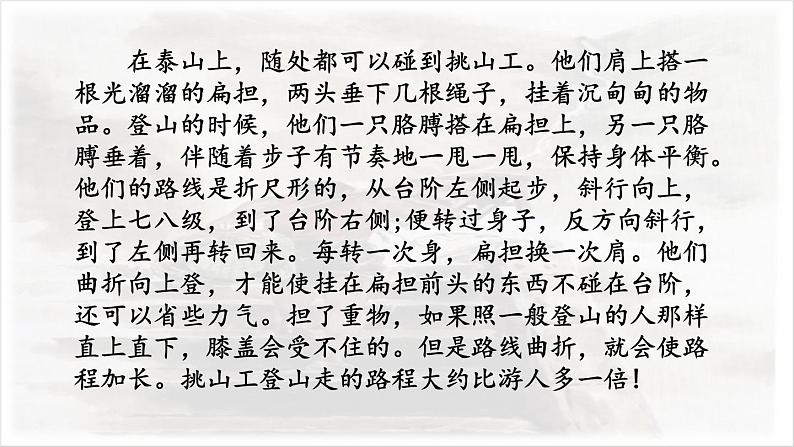 在泰山上，随处都可以碰到挑山工。他们肩上搭一
根光溜溜的扁担，两头垂下几根绳子，挂着沉甸甸的物
品。登山的时候，他们一只胳膊搭在扁担上，另一只胳
膊垂着，伴随着步子有节奏地一甩一甩，保持身体平衡。
他们的路线是折尺形的，从台阶左侧起步，斜行向上，
登上七八级，到了台阶右侧;便转过身子，反方向斜行，
到了左侧再转回来。每转一次身，扁担换一次肩。他们
曲折向上登，才能使挂在扁担前头的东西不碰在台阶，
还可以省些力气。担了重物，如果照一般登山的人那样
直上直下，膝盖会受不住的。但是路线曲折，就会使路
程加长。挑山工登山走的路程大约比游人多一倍！